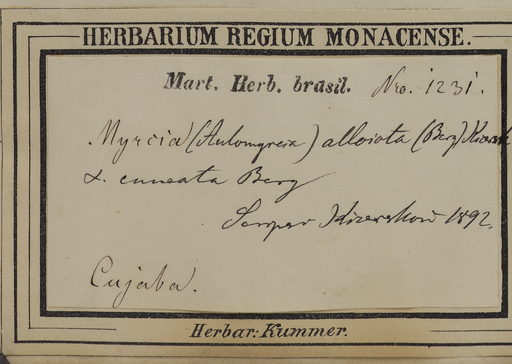 HERBARIUM REGIUM MONACENSE.
Mart. Herb. brasil. Nro. 1231.
Myrcia (Aulomyrcia) alloiota (Berg) Kiaersk
α. cuneata Berg
Hjalmar Kiaerskou 1892.
Cujaba.
Herbar: Kummer.